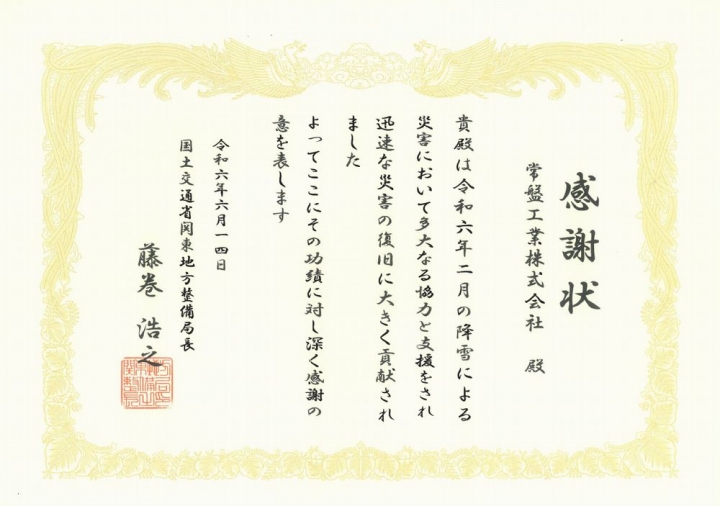 感謝状
常盤工業株式会社 殿
貴殿は令和六年二月の降雪による
災害において多大なる協力と支援をされ
迅速な災害の復旧に大きく貢献され
ました
よってここにその功績に対し深く感謝の
意を表します
令和六年六月一四日
国土交通省関東地方整備局長
藤巻 浩之